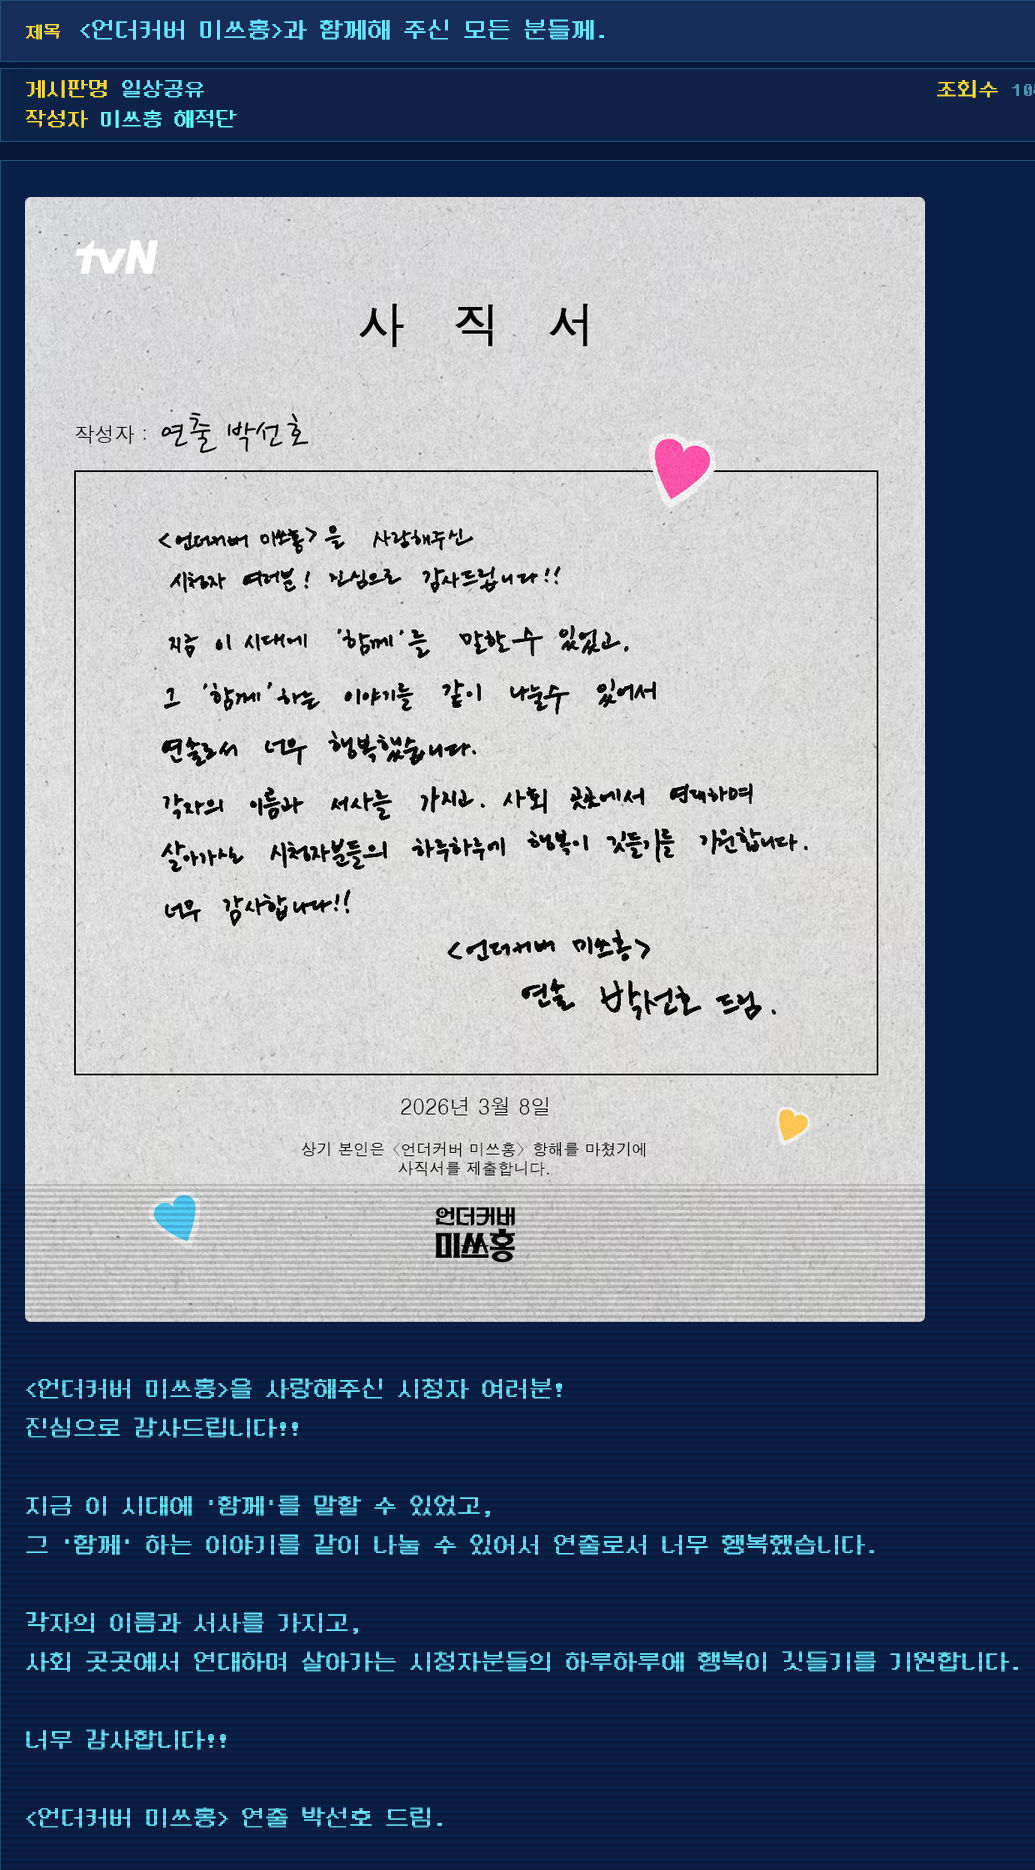 제목 <언더커버 미쓰홍>과 함께해 주신 모든 분들께.
게시판명 일상공유
조회수
작성자 미쓰홍 해적단
tvN
사 직 서
작성자 : 연출 박선호
<언더커버 미쓰홍>을 사랑해주신
시청자 여러분! 진심으로 감사드립니다!!
지금 이 시대에 '함께'를 말할 수 있었고,
그 '함께'하는 이야기를 같이 나눌수 있어서
연출로서 너무 행복했습니다.
각자의 이름과 서사를 가지고. 사회 곳곳에서 연대하며
살아가시는 시청자분들의 하루하루에 행복이 깃들기를 기원합니다.
너무 감사합니다!!
<언더커버 미쓰홍>
연출 박선호 드림.
2026년 3월 8일
상기 본인은 <언더커버 미쓰홍> 항해를 마쳤기에
사직서를 제출합니다.
언더커버
미쓰홍
<언더커버 미쓰홍>을 사랑해주신 시청자 여러분!
진심으로 감사드립니다!!
지금 이 시대에 '함께'를 말할 수 있었고,
그 '함께' 하는 이야기를 같이 나눌 수 있어서 연출로서 너무 행복했습니다.
각자의 이름과 서사를 가지고,
사회 곳곳에서 연대하며 살아가는 시청자분들의 하루하루에 행복이 깃들기를 기원합니다.
너무 감사합니다!!
<언더커버 미쓰홍> 연출 박선호 드림.